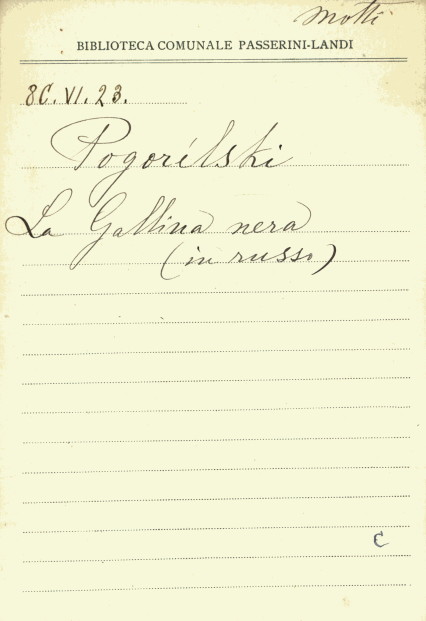 Motti
BIBLIOTECA COMUNALE PASSERINI-LANDI
8C.VI.23.
Pogorélski
La Gallina nera
(in russo)
C